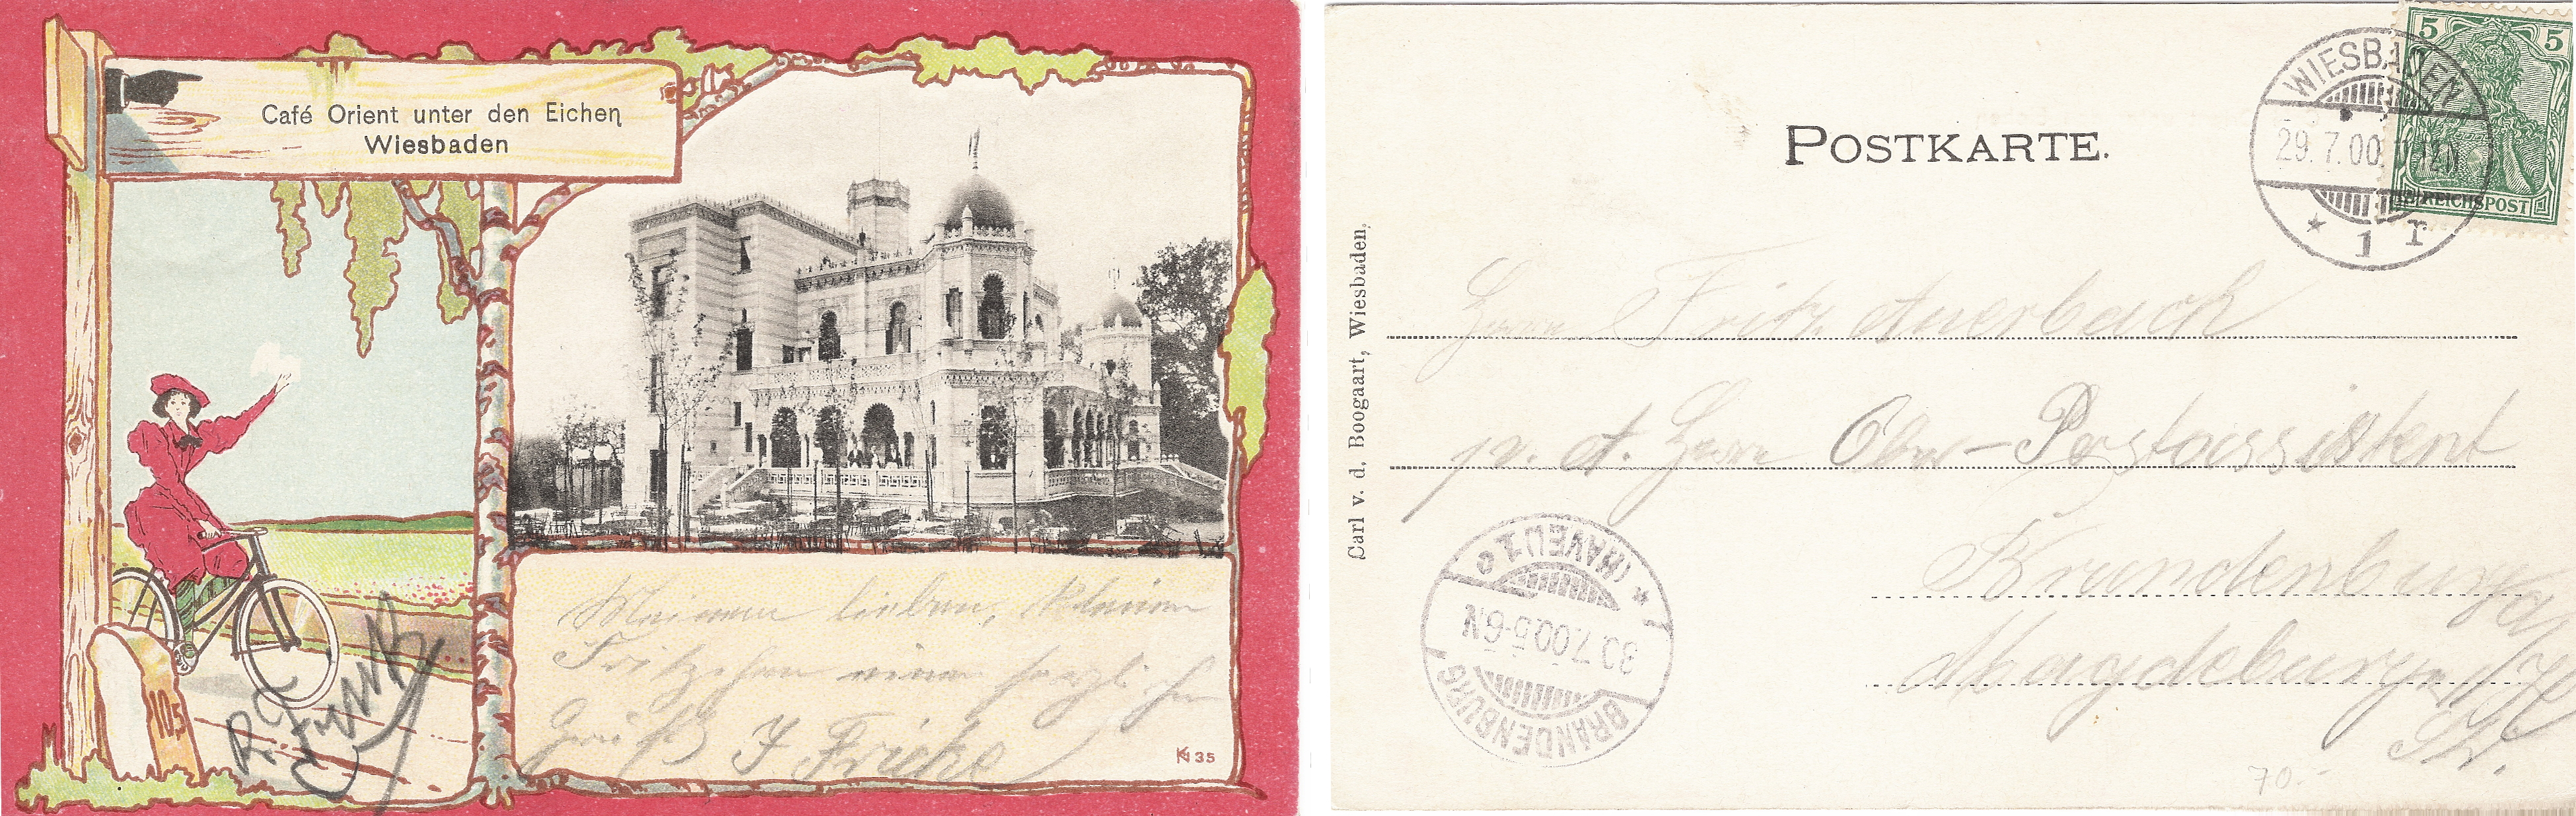 Café Orient unter den Eichen
Wiesbaden
105
Meinem lieben, kleinen
Fritzchen einen herzlichen
Gruß J Fricke
KN 35
POSTKARTE.
5 5
REICHSPOST
WIESBADEN
29.7.00
* 1 r
Carl v. d. Boogaart, Wiesbaden.
Herrn Fritz Auerbach
p. A. Herrn Ober-Postassistent
Brandenburg a/
Magdeburger
Str.
BRANDENBURG
30.7.00.5-6N
(HAVEL) 1 c
70.-